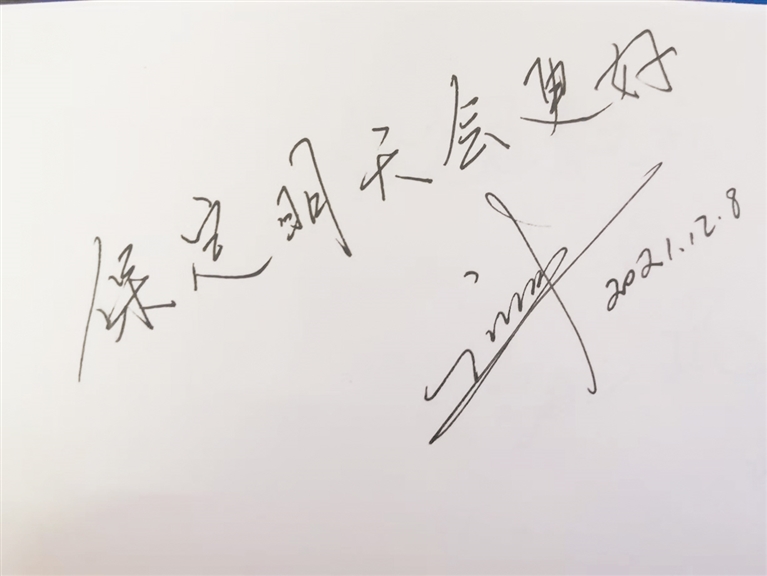 保定明天会更好
2021.12.8